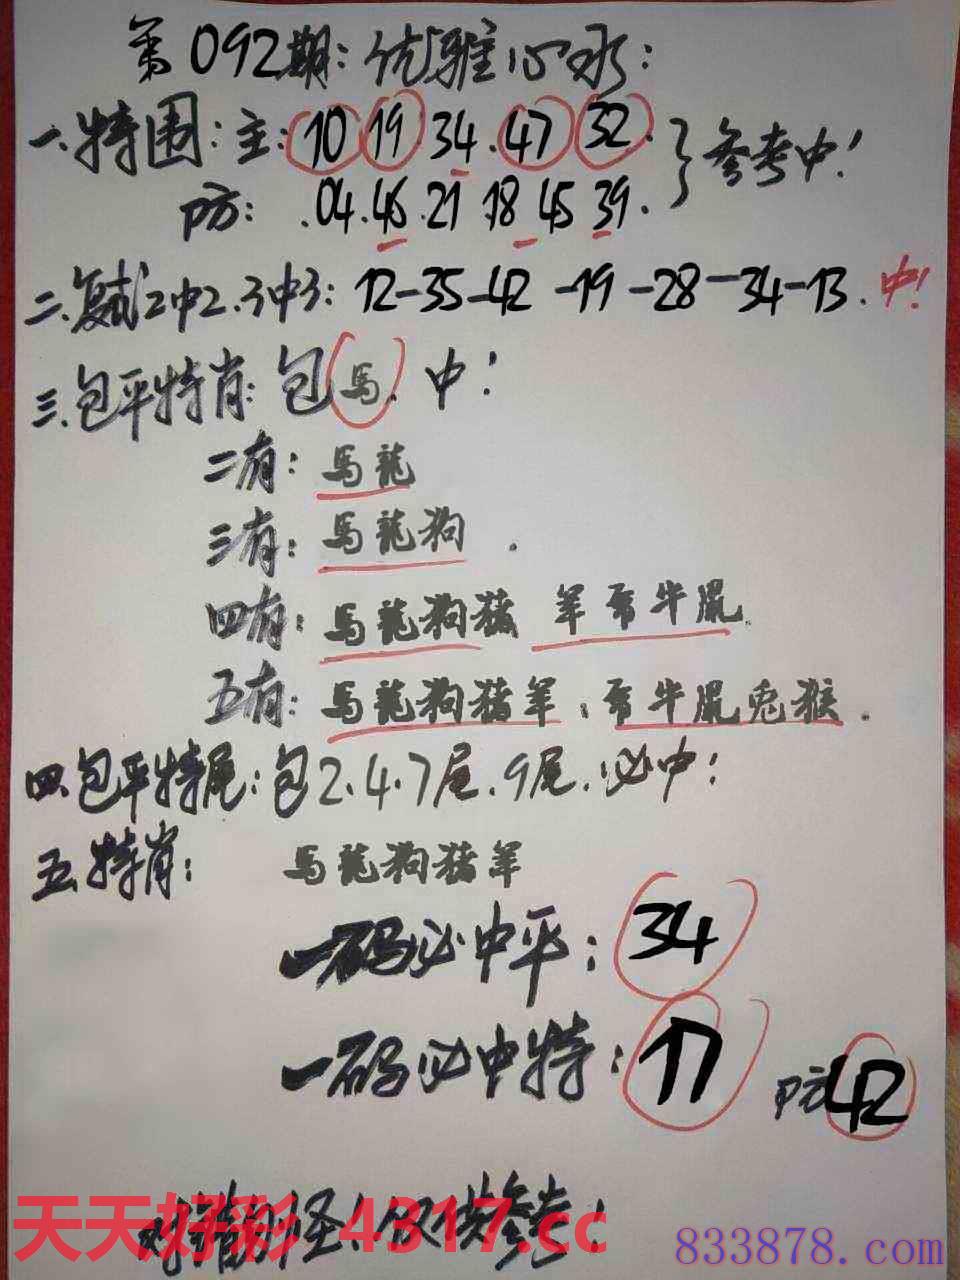 第092期:优雅心水:
一.特围:主:10 19 34.47 32.}参考中!
防:.04.46.21 18 45 39.
二.复试2中2.3中3:12-35-42-19-28-34-13.中!
三.包平特肖:包馬.中!
二有:馬龍
三有:馬龍狗.
四有:馬龍狗猪 羊 牛鼠.
五有:馬龍狗猪羊: 牛鼠兔猴.
四.包平特尾:包2.4.7尾.9尾.必中!
五.特肖: 馬龍狗猪羊
一码必中平:34
一码必中特:17 防42
对错勿怪!仅供参考!
天天好彩 4317.cc
833878.com